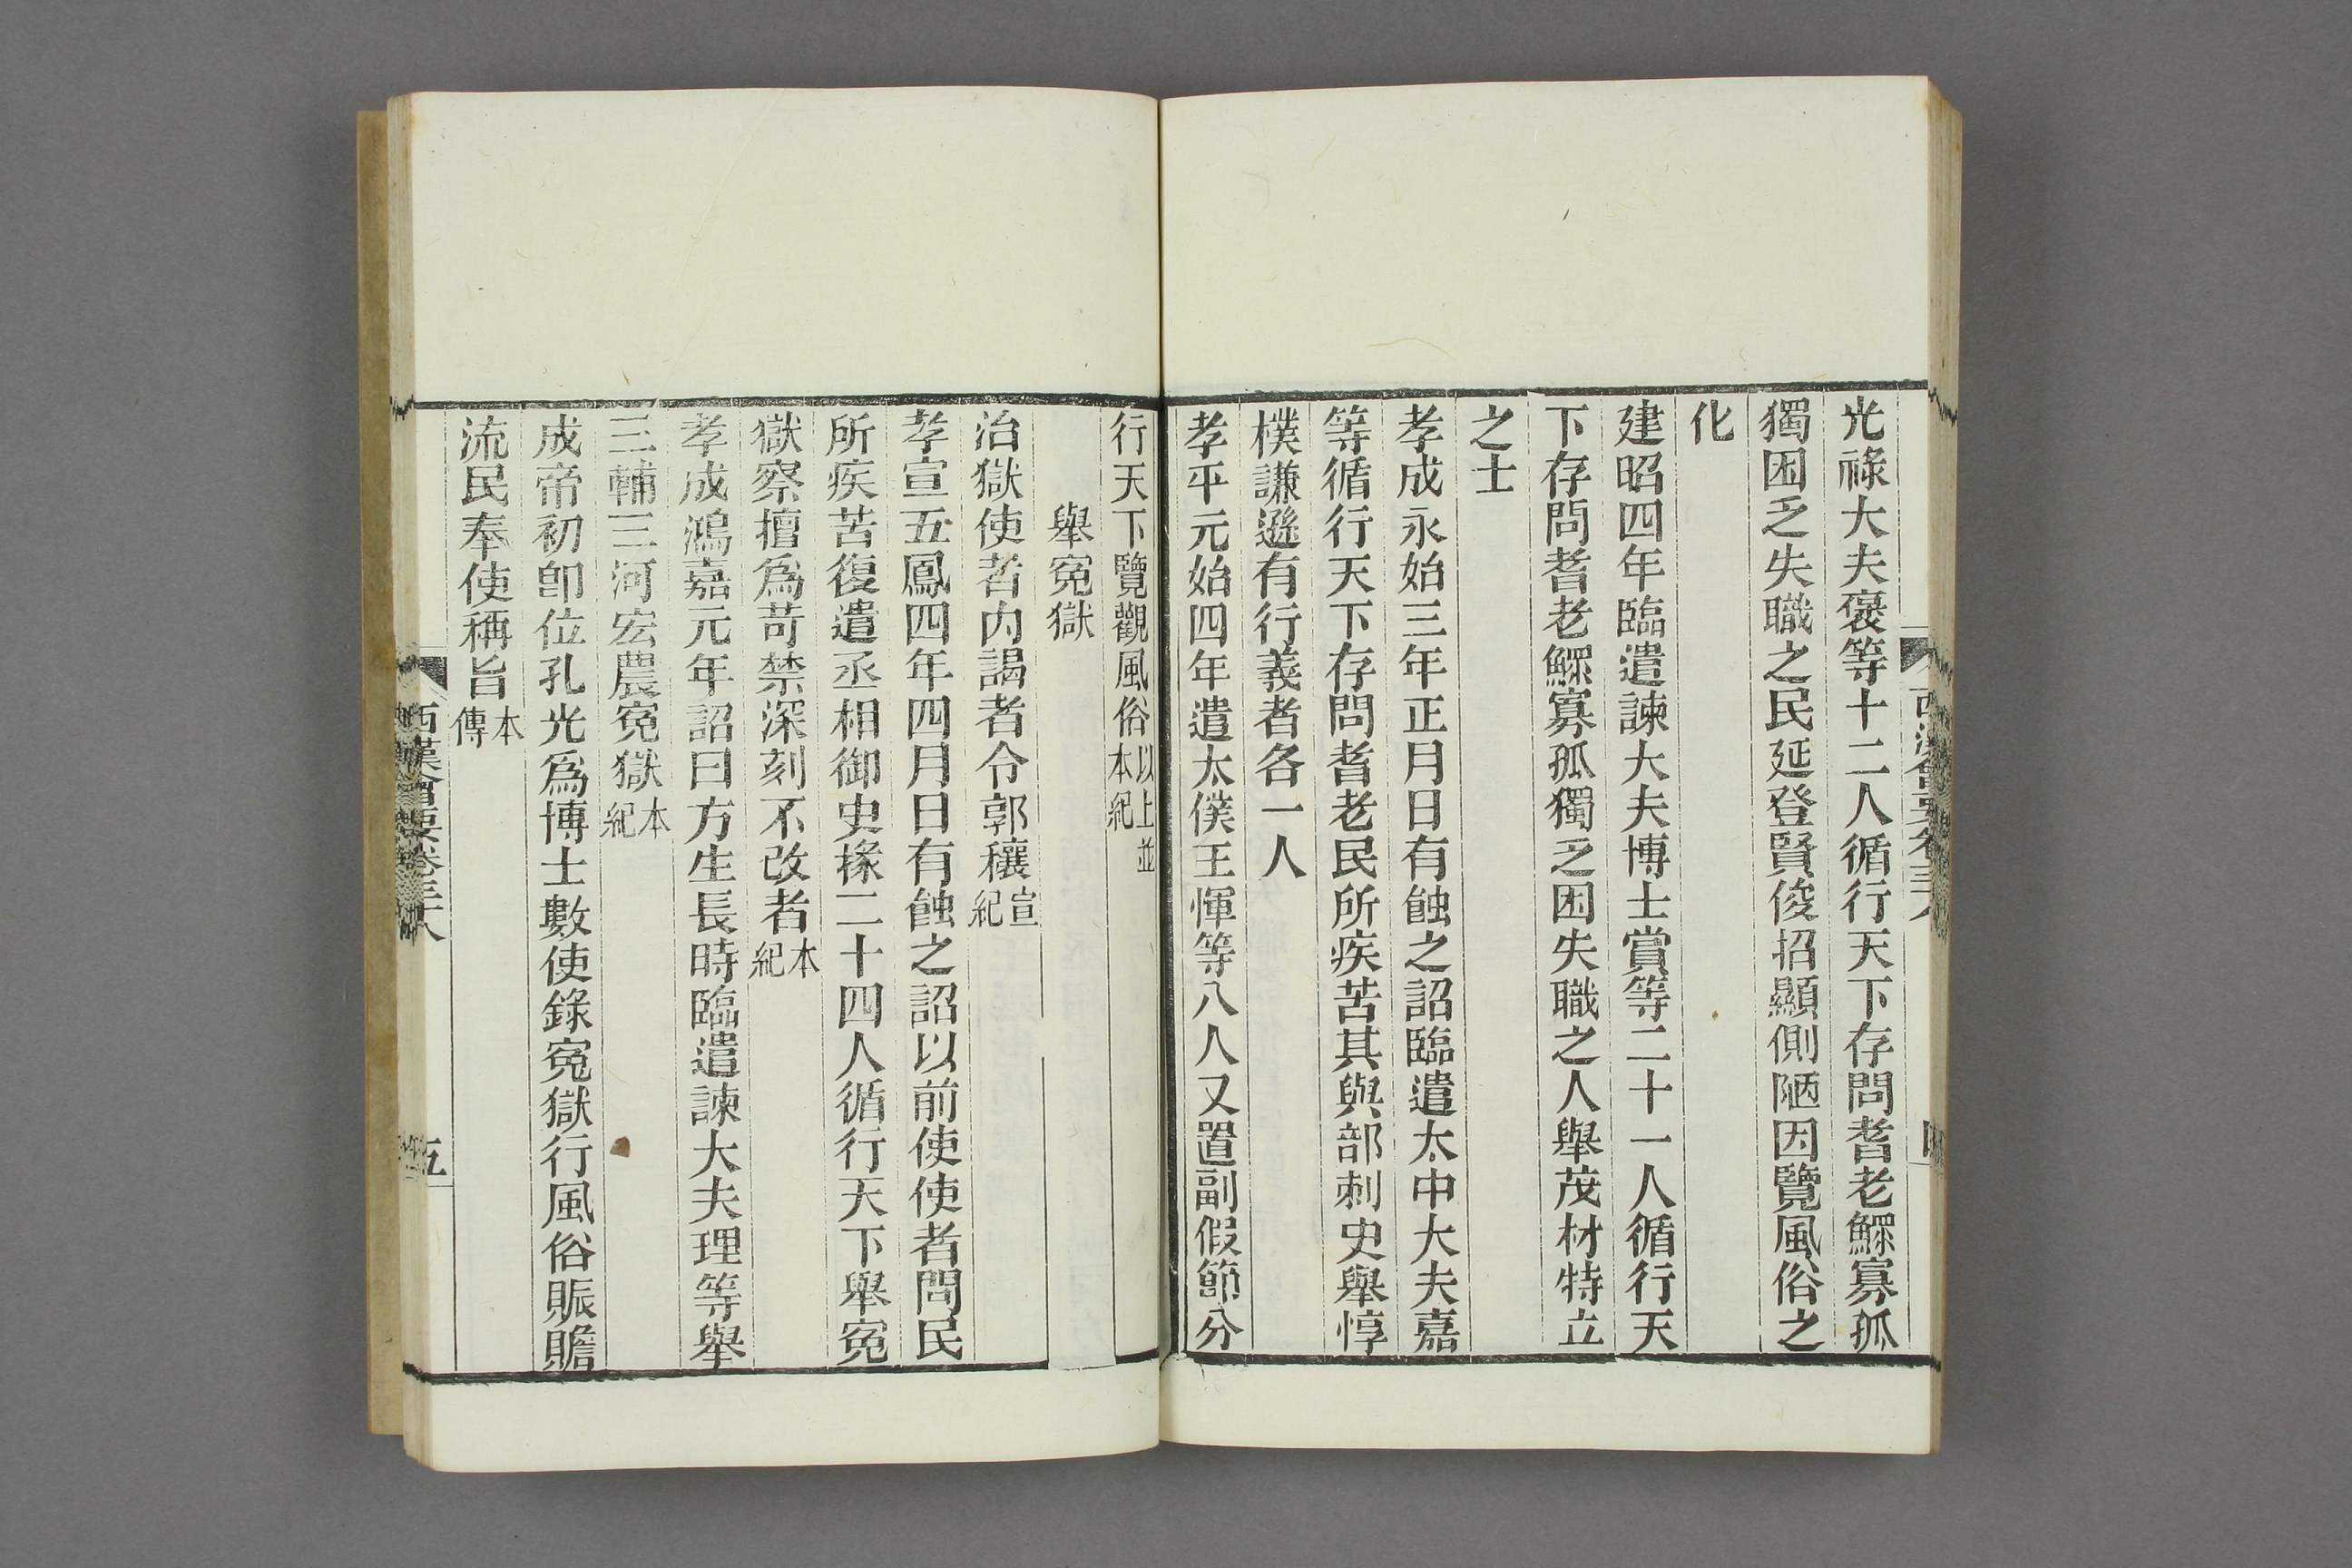 光祿大夫褒等十二人循行天下存問耆老鰥寡孤
獨困乏失職之民延登賢俊招顯側陋因覽風俗之
化
建昭四年臨遣諫大夫博士賞等二十一人循行天
下存問耆老鰥寡孤獨乏困失職之人舉茂材特立
之士
孝成永始三年正月日有蝕之詔臨遣太中大夫嘉
等循行天下存問耆老民所疾苦其與部刺史舉惇
樸謙遜有行義者各一人
孝平元始四年遣太僕王惲等八人又置副假節分
行天下覽觀風俗以上並本紀
舉冤獄
治獄使者內謁者令郭穰宣紀
孝宣五鳳四年四月日有蝕之詔以前使使者問民
所疾苦復遣丞相御史掾二十四人循行天下舉冤
獄察擅爲苛禁深刻不改者本紀
孝成鴻嘉元年詔曰方生長時臨遣諫大夫理等舉
三輔三河宏農冤獄本紀
成帝初卽位孔光爲博士數使錄冤獄行風俗賑贍
流民奉使稱旨本傳
西漢會要卷三十八
五